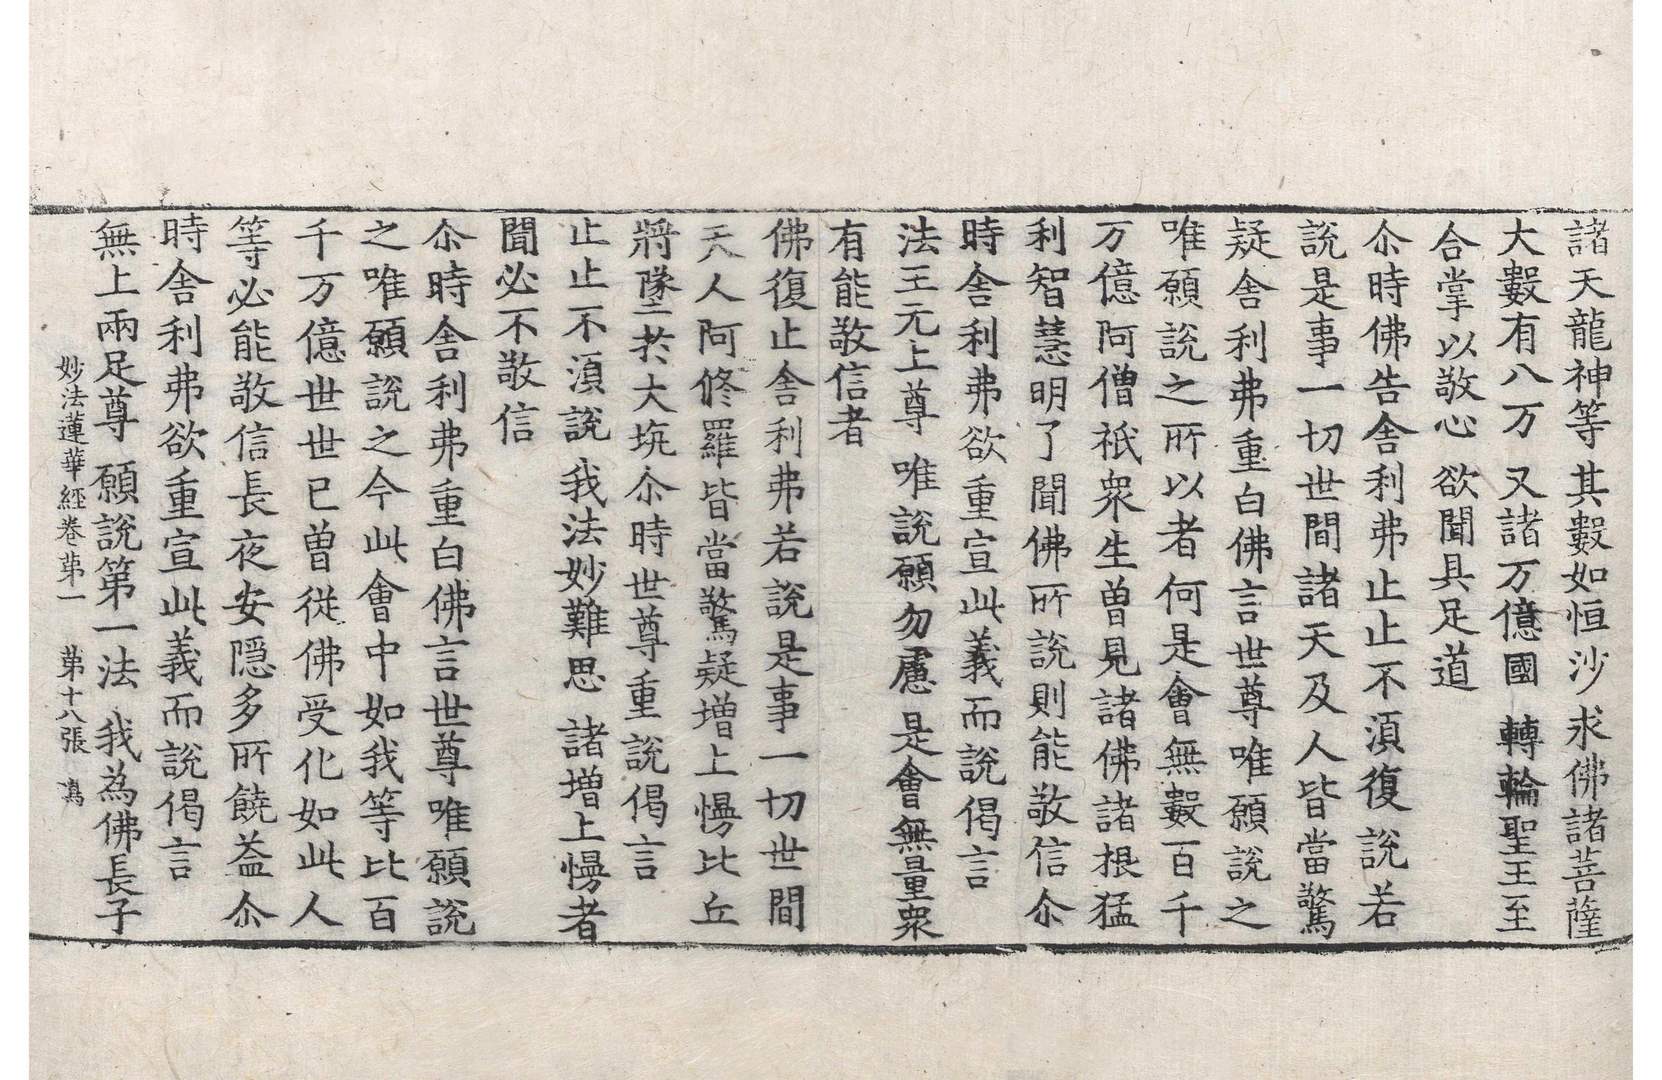 諸天龍神等 其數如恒沙 求佛諸菩薩
大數有八万 又諸万億國 轉輪聖王至
合掌以敬心 欲聞具足道
尒時佛告舍利弗止止不湏復說若
說是事一切世間諸天及人皆當驚
疑舍利弗重白佛言世尊唯願說之
唯願說之所以者何是會無數百千
万億阿僧祇衆生曾見諸佛諸根猛
利智慧明了聞佛所說則能敬信尒
時舍利弗欲重宣此義而說偈言
法王无上尊 唯說願勿慮 是會無量衆
有能敬信者
佛復止舍利弗若說是事一切世間
天人阿修羅皆當驚疑增上慢比丘
將墜扵大坑尒時世尊重說偈言
止止不湏說 我法妙難思 諸增上慢者
聞必不敬信
尒時舍利弗重白佛言世尊唯願說
之唯願說之今此會中如我等比百
千万億世世已曾從佛受化如此人
等必能敬信長夜安隱多所饒益尒
時舍利弗欲重宣此義而說偈言
無上兩足尊 願說第一法 我為佛長子
妙法蓮華經卷苐一 苐十八張